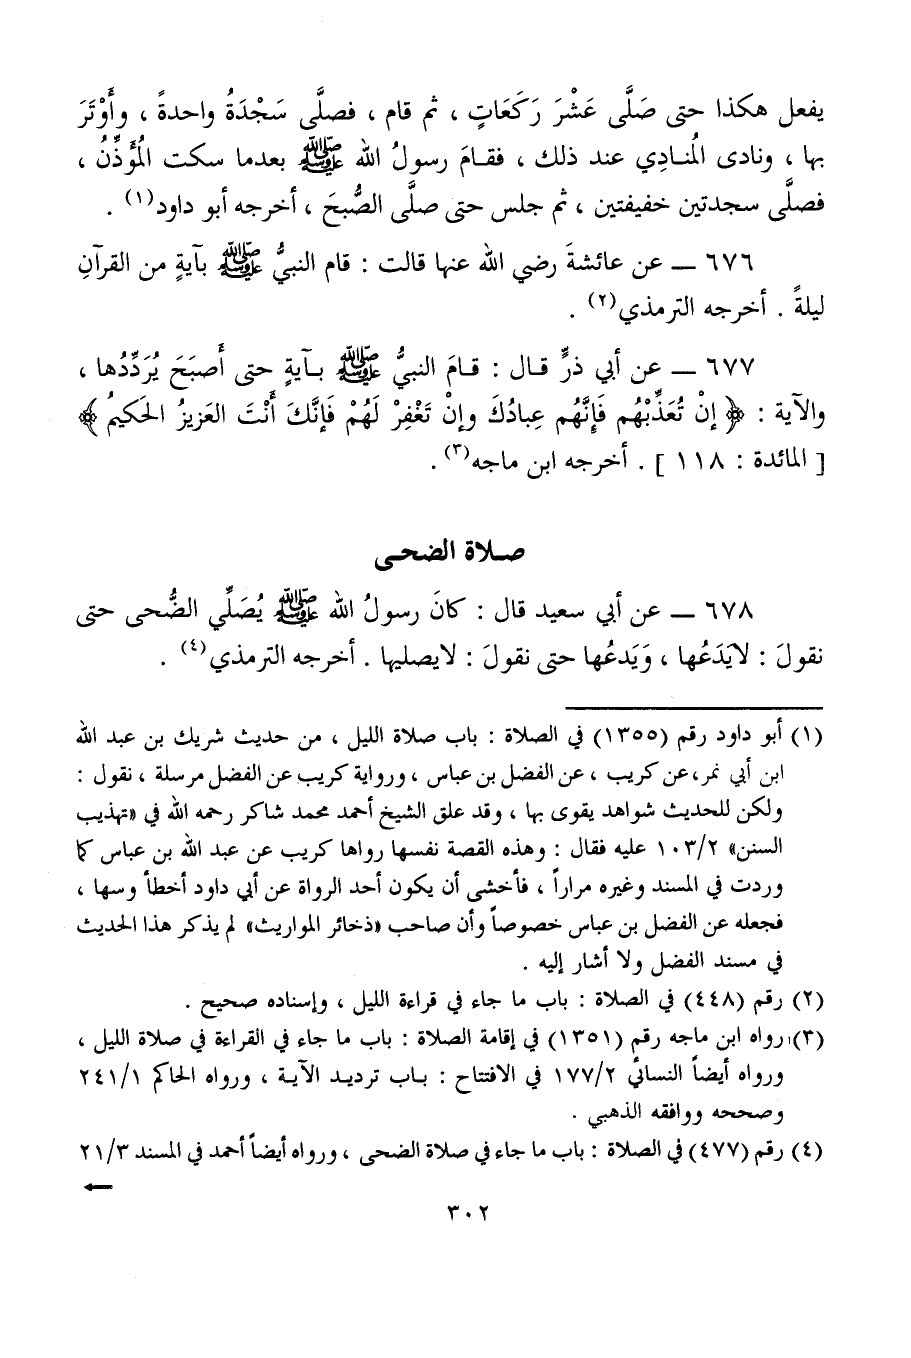 يفعل هكذا حتى صَلَّى عَشْرَ رَكَعَاتٍ ، ثم قام ، فصلَّى سَجْدَةُ واحدةً ، وأَوْتَرَ
بها ، ونادى المُنـادِي عند ذلك ، فقـامَ رسولُ الله ﷺ بعدما سكت المُؤَذِّنُ ،
فصلَّى سجدتين خفيفتين ، ثم جلس حتى صلَّى الصُّبحَ ، أخرجه أبو داود(١) .
٦٧٦ ــ عن عائشةَ رضي الله عنها قالت : قام النبيُّ ﷺ بآيةٍ من القرآنِ
ليلةً . أخرجه الترمذي(٢) .
٦٧٧ ــ عن أبي ذرٍّ قـال : قـامَ النبيُّ ﷺ بـآيةٍ حتى أَصبَحَ يُرَدِّدُها ،
والآية : ﴿ إنْ تُعَذِّبْهُم فَإنَّهُم عِبادُكَ وإنْ تَغْفِرْ لَهُمْ فَإنَّكَ أَنْتَ العَزيزُ الحَكيمُ ﴾
[ المائدة : ١١٨ ] . أخرجه ابن ماجه(٣) .
صـلاة الضحـى
٦٧٨ ــ عن أبي سعيد قال : كانَ رسولُ الله ﷺ يُصَلِّي الضُّحى حتى
نقولَ : لايَدَعُها ، وَيَدعُها حتى نقولَ : لايصليها . أخرجه الترمذي(٤) .
(١) أبو داود رقم (١٣٥٥) في الصلاة : باب صلاة الليل ، من حديث شريك بن عبد الله
ابن أبي نمر، عن كريب ، عن الفضل بن عباس ، ورواية كريب عن الفضل مرسلة ، نقول :
ولكن للحديث شواهد يقوى بها ، وقد علق الشيخ أحمد محمد شاكر رحمه الله في «تهذيب
السنن» ١٠٣/٢ عليه فقال : وهذه القصة نفسها رواها كريب عن عبد الله بن عباس كما
وردت في المسند وغيره مراراً ، فأخشى أن يكون أحد الرواة عن أبي داود أخطأ وسها ،
فجعله عن الفضل بن عباس خصوصاً وأن صاحب «ذخائر المواريث» لم يذكر هذا الحديث
في مسند الفضل ولا أشار إليه .
(٢) رقم (٤٤٨) في الصلاة : باب ما جاء في قراءة الليل ، وإسناده صحيح .
(٣) رواه ابن ماجه رقم (١٣٥١) في إقامة الصلاة : باب ما جاء في القراءة في صلاة الليل ،
ورواه أيضاً النسائي ١٧٧/٢ في الافتتاح : بـاب ترديـد الآيـة ، ورواه الحاكم ٢٤١/١
وصححه ووافقه الذهبي .
(٤) رقم (٤٧٧) في الصلاة : باب ما جاء في صلاة الضحى ، ورواه أيضاً أحمد في المسند ٢١/٣
٣٠٢